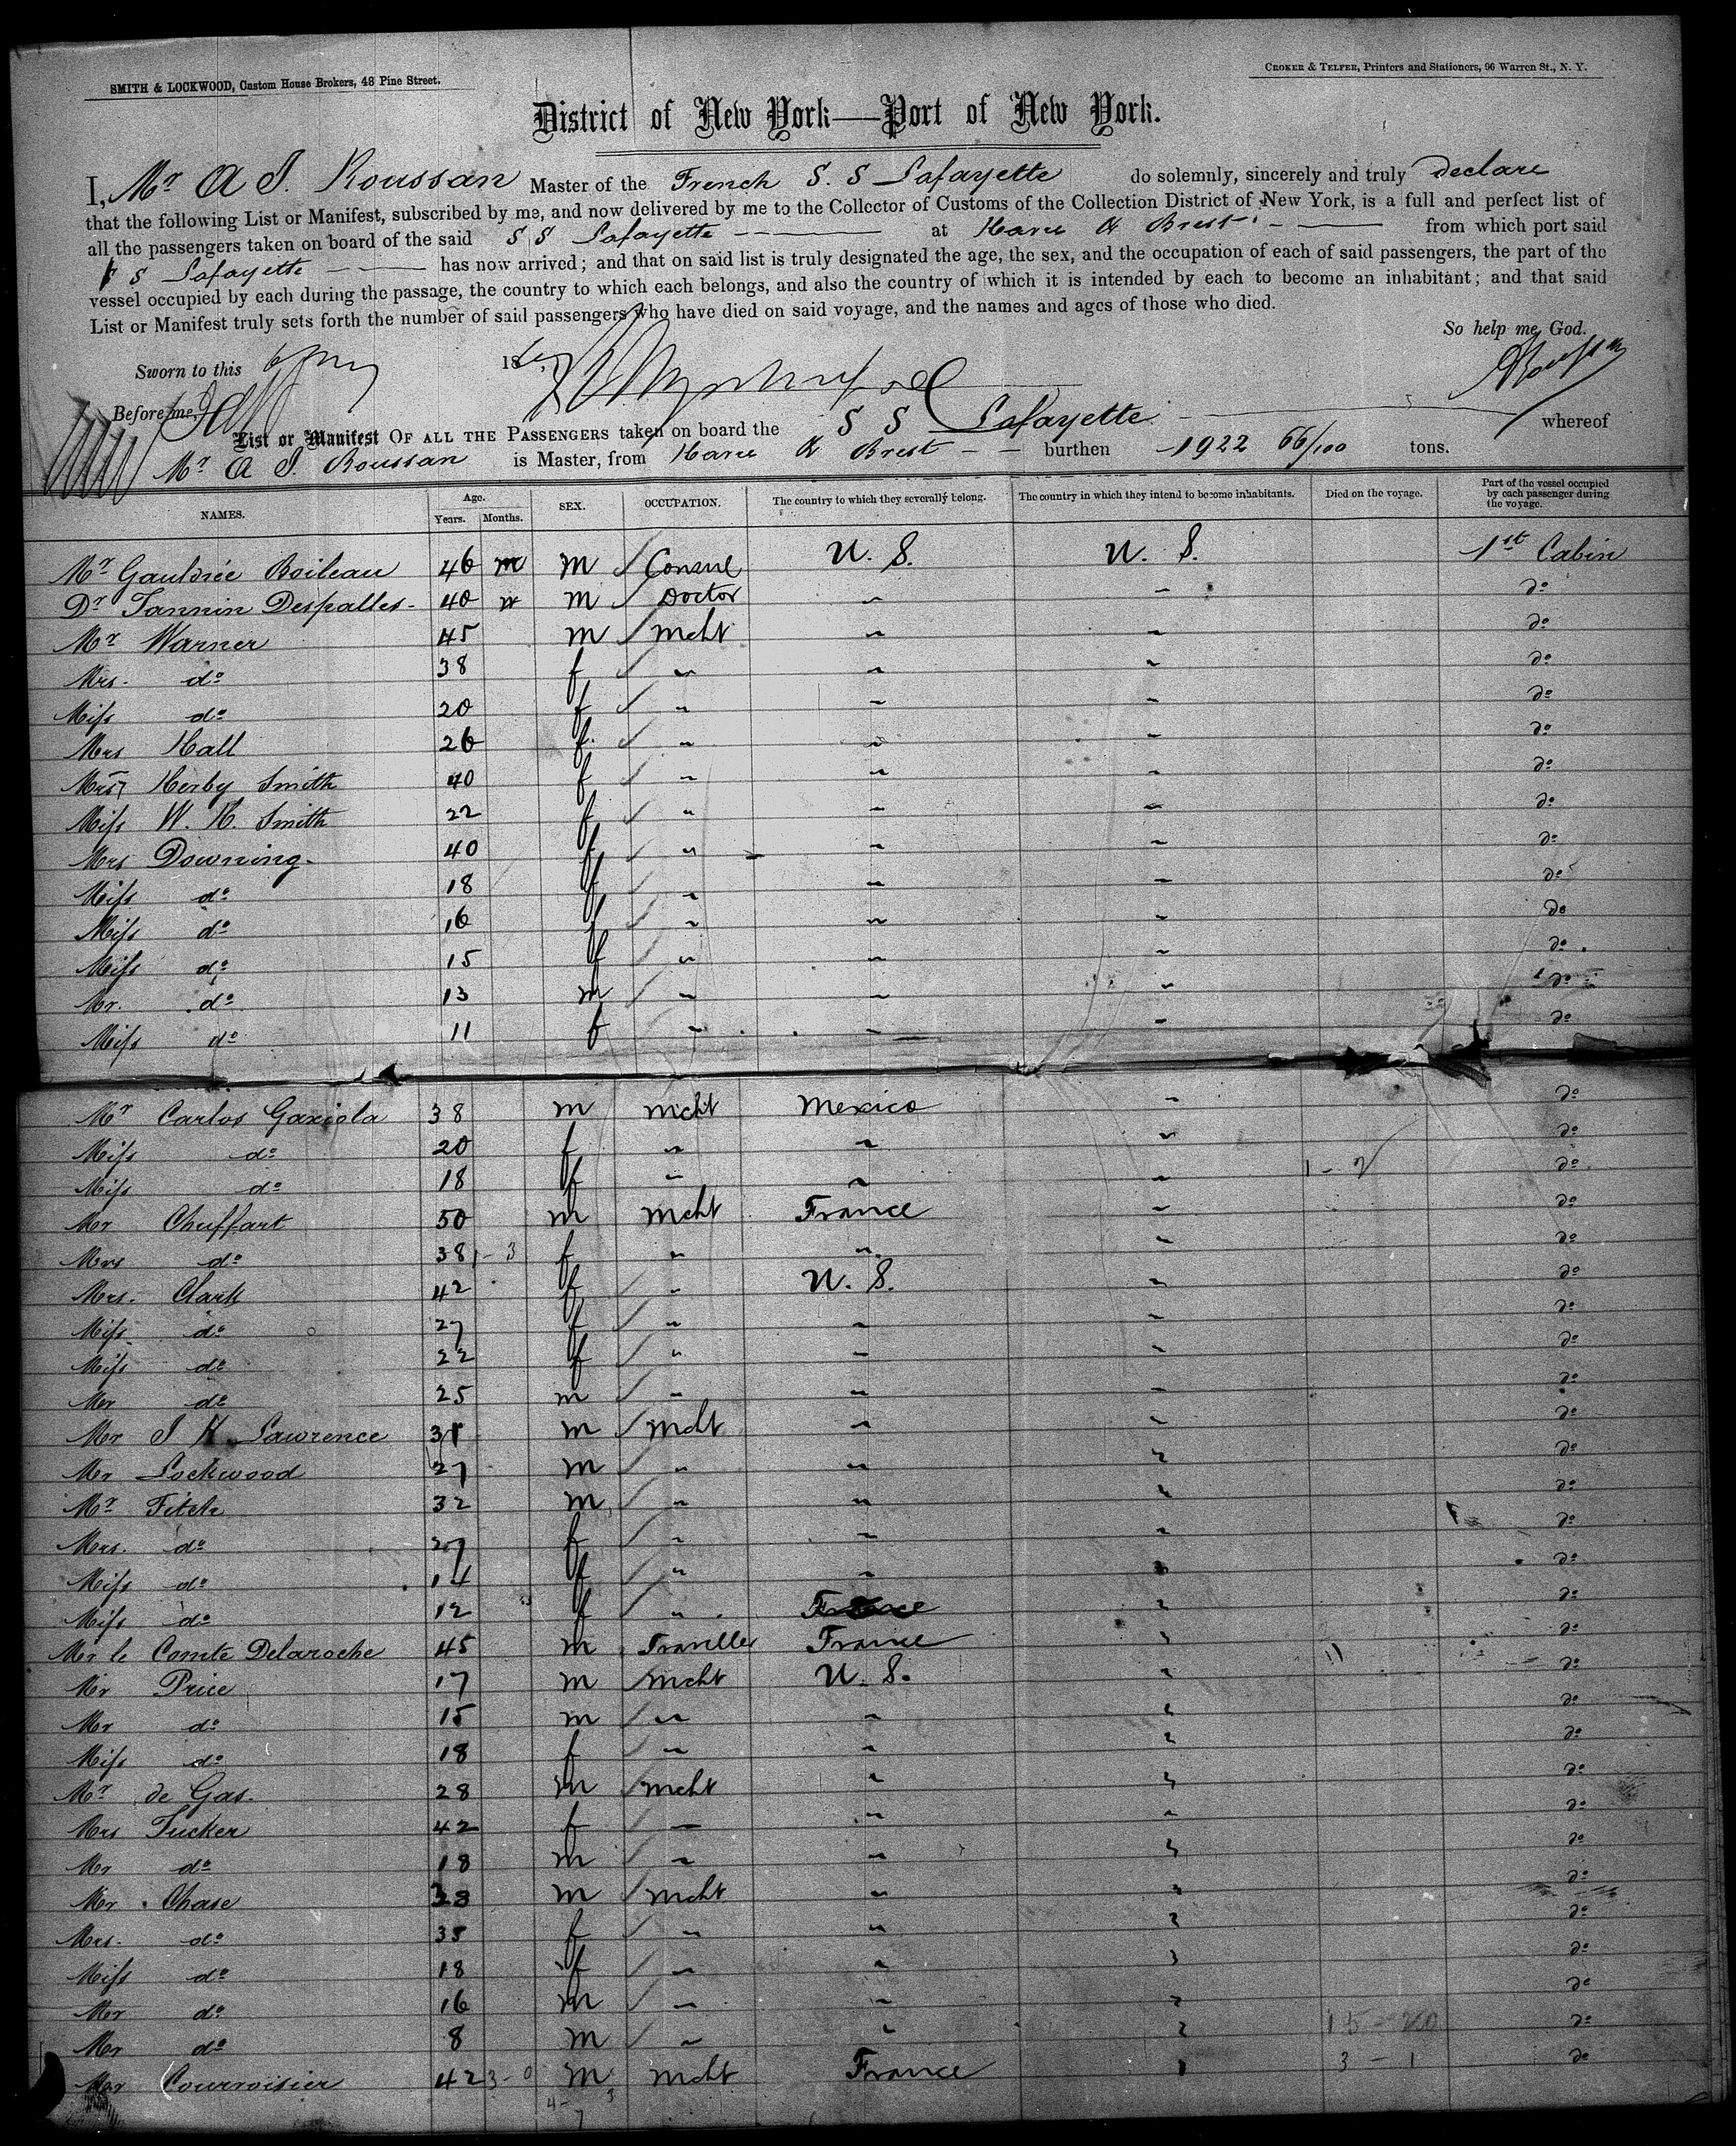 SMITH & LOCKWOOD, Custom House Brokers, 48 Pine Street.
CROKER & TELFER, Printers and Stationers, 96 Warren St., N. Y.
District of New York—Port of New York.
I, Mr A J. Roussan Master of the French S. S Lafayette do solemnly, sincerely and truly declare
that the following List or Manifest, subscribed by me, and now delivered by me to the Collector of Customs of the Collection District of New York, is a full and perfect list of
all the passengers taken on board of the said S S Lafayette at Havre & Brest from which port said
S S Lafayette has now arrived; and that on said list is truly designated the age, the sex, and the occupation of each of said passengers, the part of the
vessel occupied by each during the passage, the country to which each belongs, and also the country of which it is intended by each to become an inhabitant; and that said
List or Manifest truly sets forth the number of said passengers who have died on said voyage, and the names and ages of those who died.
So help me God.
Sworn to this 186
Before me,
List or Manifest OF ALL THE PASSENGERS taken on board the S S Lafayette whereof
Mr A J. Roussan is Master, from Havre & Brest burthen 1922 66/100 tons.
NAMES. Age. Years. Months. SEX. OCCUPATION. The country to which they severally belong. The country in which they intend to become inhabitants. Died on the voyage. Part of the vessel occupied by each passenger during the voyage.
Mr Gauldrée Boileau 46 m m Consul U. S. U. S. 1st Cabin
Dr Tannin Despalles 40 m Doctor " " do
Mr Warner 45 m mcht " " do
Mrs. do 38 f " " " do
Miss do 20 f " " " do
Mrs Hall 26 f. " " " do
Mrs Herby Smith 40 f " " " do
Miss W. H. Smith 22 f " " " do
Mrs Downing 40 f " " " do
Miss do 18 f " " " do
Miss do 16 f " " " do
Miss do 15 f " " " do
Mr. do 13 m " " " do
Miss do 11 f " " " do
Mr Carlos Gaxiola 38 m mcht Mexico " do
Miss do 20 f " " " do
Miss do 18 f " " " do
Mr Cheffart 50 m mcht France " do
Mrs do 38 f " " " do
Mrs. Clark 42 f " U. S. " do
Miss do 27 f " " " do
Miss do 22 f " " " do
Mr do 25 m " " " do
Mr J H. Lawrence m mcht " " do
Mr Lockwood 27 m " " " do
Mr Fitch 32 m " " " do
Mrs. do 27 f " " " do
Miss do 14 f " " " do
Miss do 12 f " France " do
Mr le Comte Delaroche 45 m Traveller France " do
Mr Price 17 m mcht U. S. " do
Mr do 15 m " " " do
Miss do 18 f " " " do
Mr de Gas. 28 m mcht " " do
Mrs Tucker 42 f " " " do
Mr do 18 m " " " do
Mr Chase 38 m mcht " " do
Mrs. do 35 f " " " do
Miss do 18 f " " " do
Mr do 16 m " " " do
Mr do 8 m " " " do
Mr Courvoisier 42 m mcht France " do